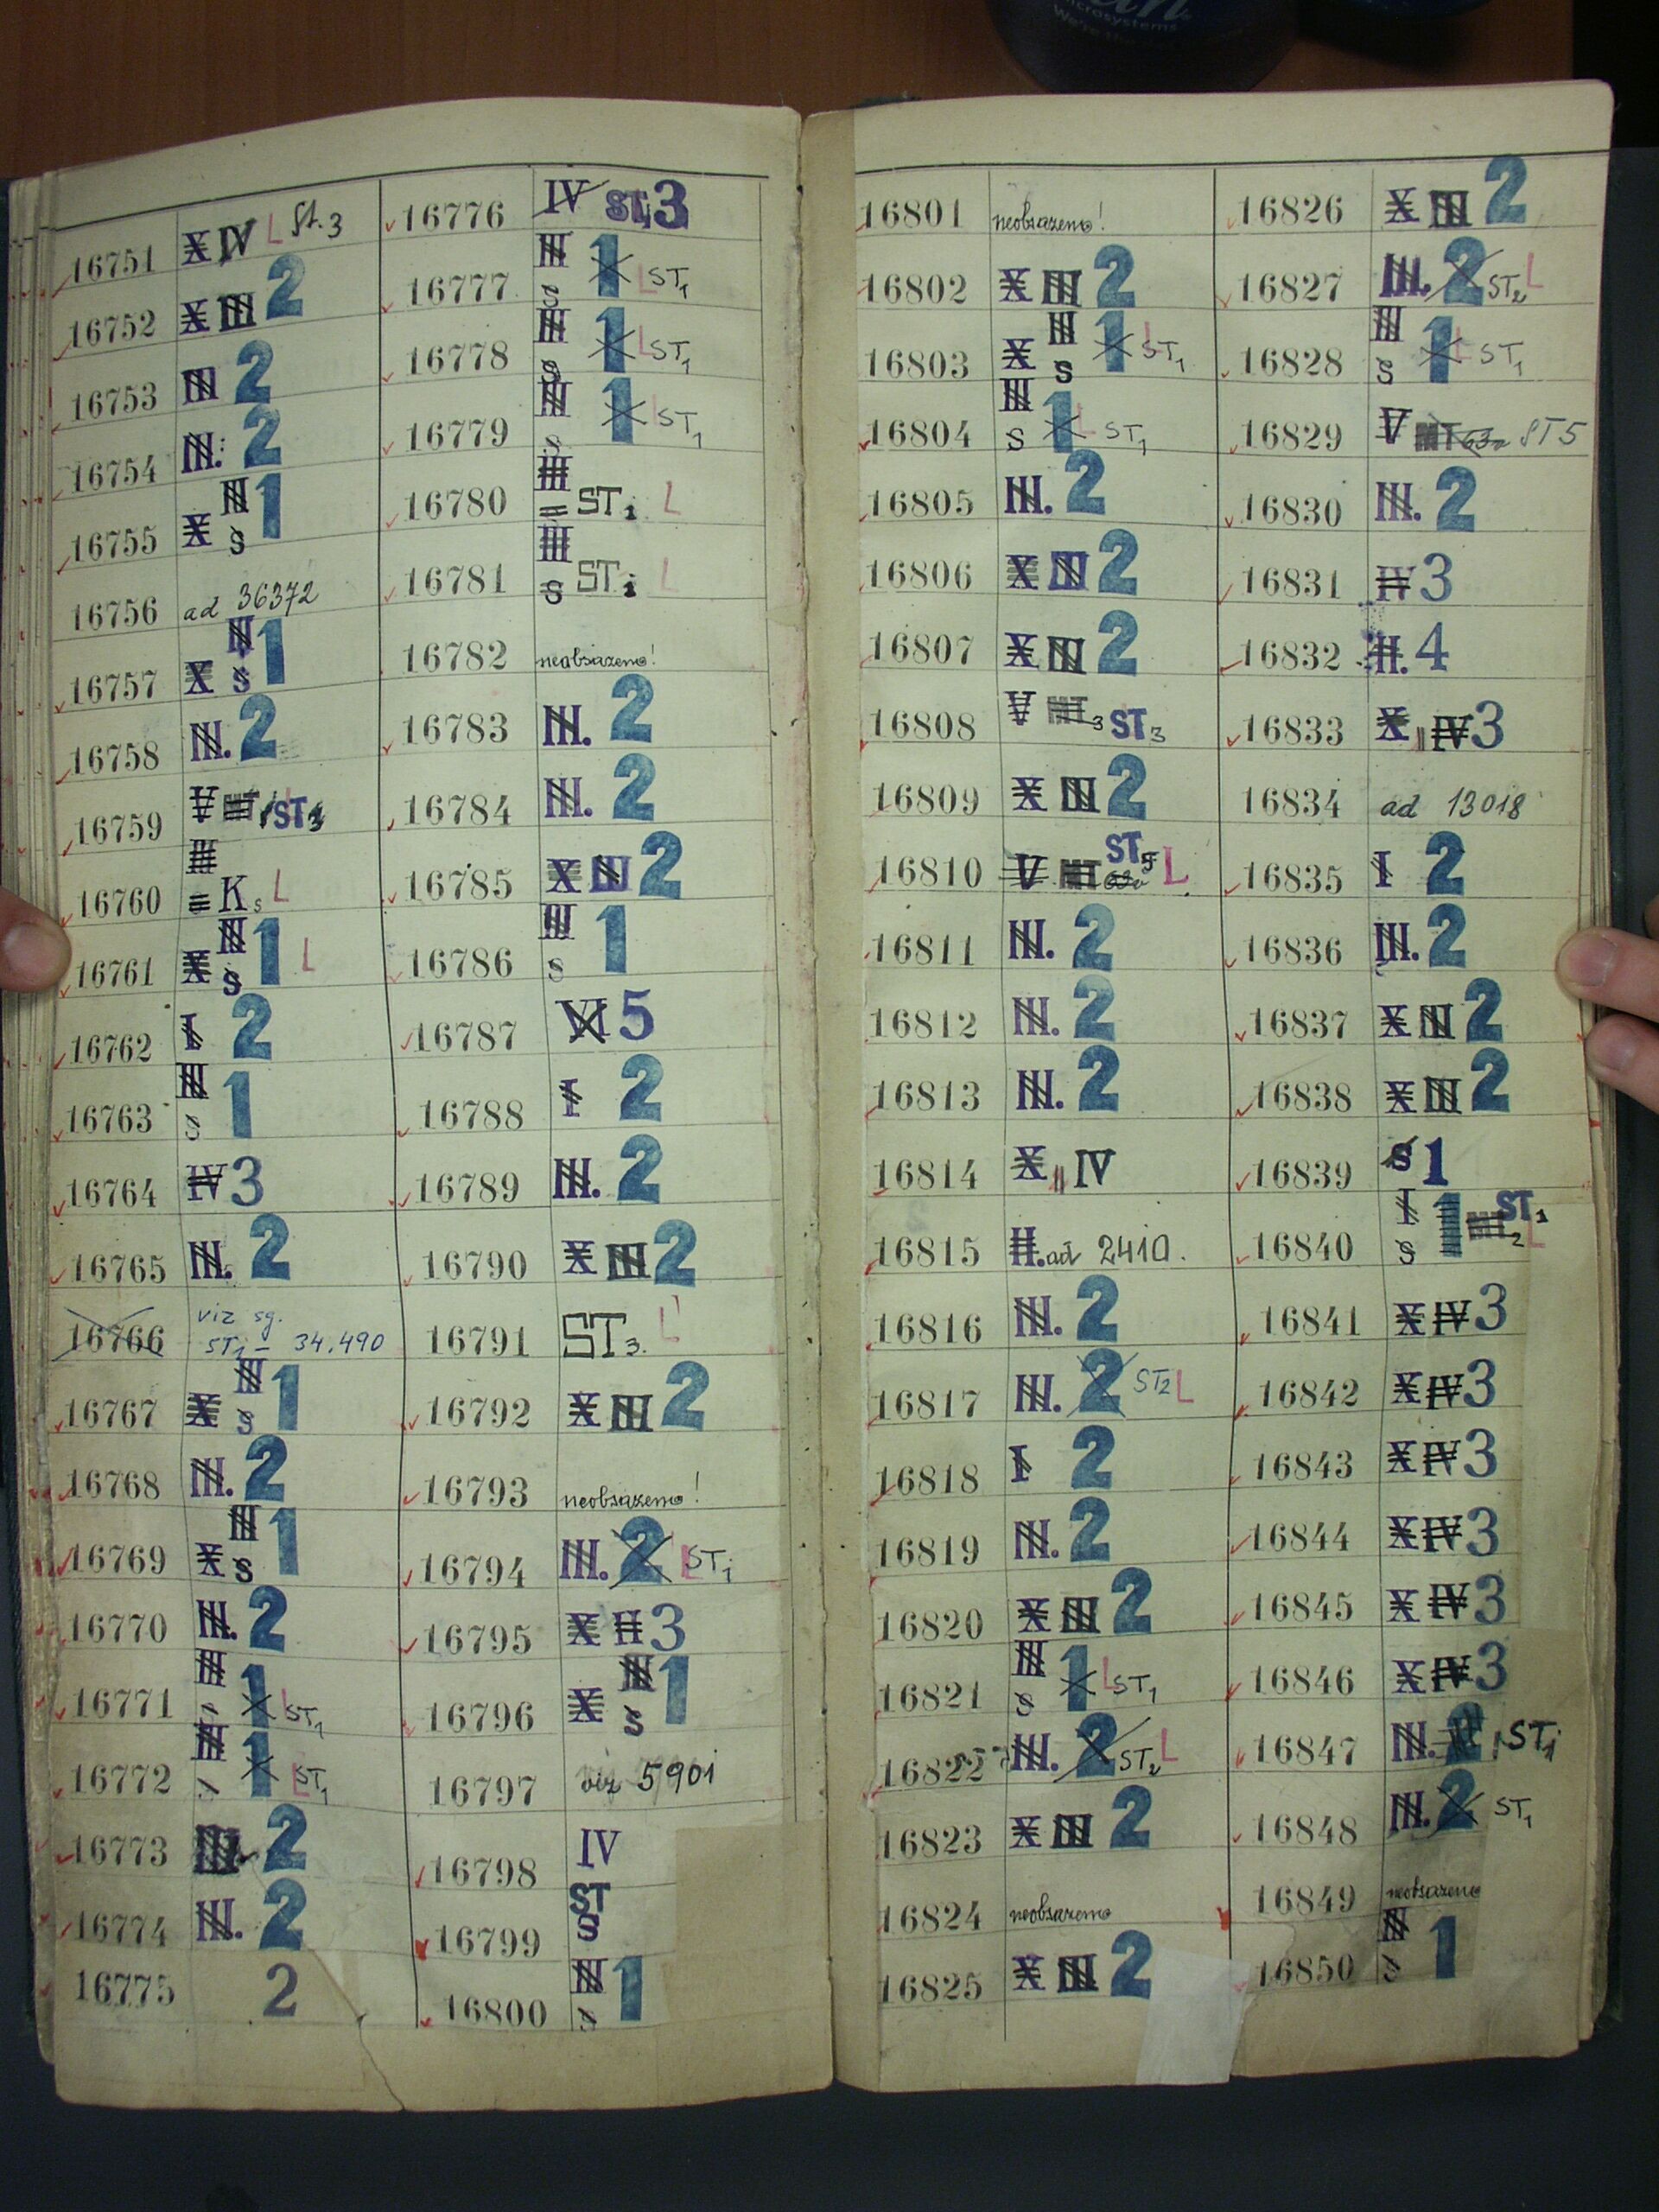 Microsystems
16751 X IV L St.3
16752 X III 2
16753 III 2
16754 III. 2
16755 X III S 1
16756 ad 36372
16757 X III S 1
16758 III. 2
16759 V ST3
16760 III K s L
16761 X III S 1 L
16762 I 2
16763 III S 1
16764 IV 3
16765 III. 2
16766 viz sg. ST1 - 34.490
16767 X III S 1
16768 III. 2
16769 X III S 1
16770 III. 2
16771 III s 1 L ST1
16772 III s 1 L ST1
16773 III. 2
16774 III. 2
16775 2
16776 IV ST 3
16777 III S 1 L ST1
16778 III S 1 L ST1
16779 III S 1 L ST1
16780 III ST1 L
16781 III S ST1 L
16782 neobsazeno!
16783 III. 2
16784 III. 2
16785 X III 2
16786 III S 1
16787 VI 5
16788 I 2
16789 III. 2
16790 X III 2
16791 ST3. L
16792 X III 2
16793 neobsazeno!
16794 III. 2 L ST1
16795 X II 3
16796 X III S 1
16797 viz 5901
16798 IV
16799 ST S
16800 III S 1
16801 neobsazeno!
16802 X III 2
16803 X III S 1 L ST1
16804 III S 1 L ST1
16805 III. 2
16806 X III 2
16807 X III 2
16808 V MT3 ST3
16809 X III 2
16810 V MT ST5 L
16811 III. 2
16812 III. 2
16813 III. 2
16814 X IV
16815 II. ad 2410.
16816 III. 2
16817 III. 2 ST2 L
16818 I 2
16819 III. 2
16820 X III 2
16821 III S 1 L ST1
16822 III. 2 ST2 L
16823 X III 2
16824 neobsazeno
16825 X III 2
16826 X III 2
16827 III. 2 ST2 L
16828 III S 1 L ST1
16829 V MT ST5
16830 III. 2
16831 IV 3
16832 II. 4
16833 X IV 3
16834 ad 13018
16835 I 2
16836 III. 2
16837 X III 2
16838 X III 2
16839 S 1
16840 I S 1 MT2 ST1 L
16841 X IV 3
16842 X IV 3
16843 X IV 3
16844 X IV 3
16845 X IV 3
16846 X IV 3
16847 III. 2 ST1
16848 III. 2 ST1
16849 neobsazeno
16850 III S 1